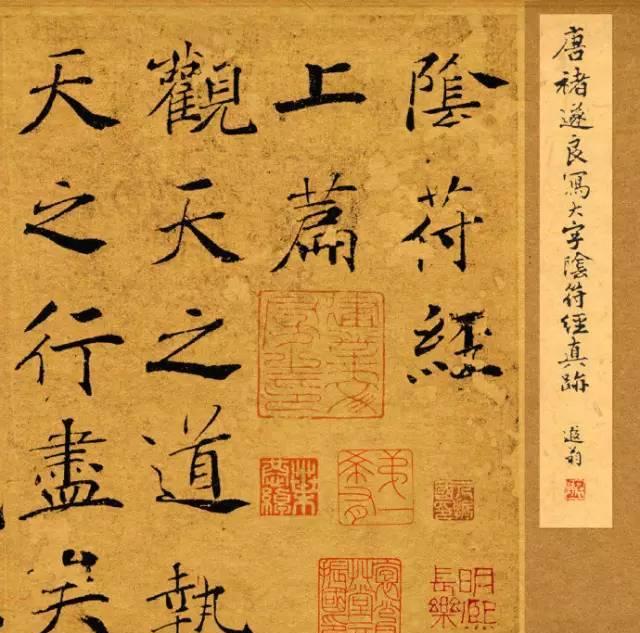 唐褚遂良寫大字陰符經真跡
遐翁
陰符經
上篇
觀天之道執
天之行盡矣
第一希有
明熙
長樂